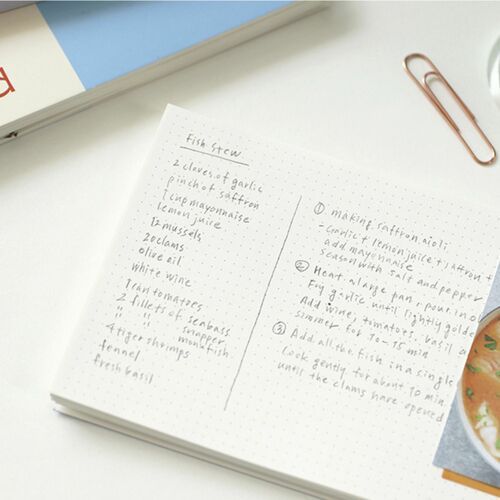 Fish Stew
2 cloves of garlic
pinch of saffron
1 cup mayonnaise
lemon juice
12 mussels
20 clams
olive oil
white wine
1 can tomatoes
2 fillets of seabass
" " snapper
" " monkfish
4 tiger shrimps
fennel
fresh basil
① making saffron aioli
- Garlic + lemon juice + saffron +
add mayonnaise
season with salt and pepper
② Heat a large pan, pour in
Fry garlic until lightly golde
Add wine, tomatoes, basil a
simmer for 10-15 min
③ Add all the fish in a single
Cook gently for about 10 min
until the clams have opened